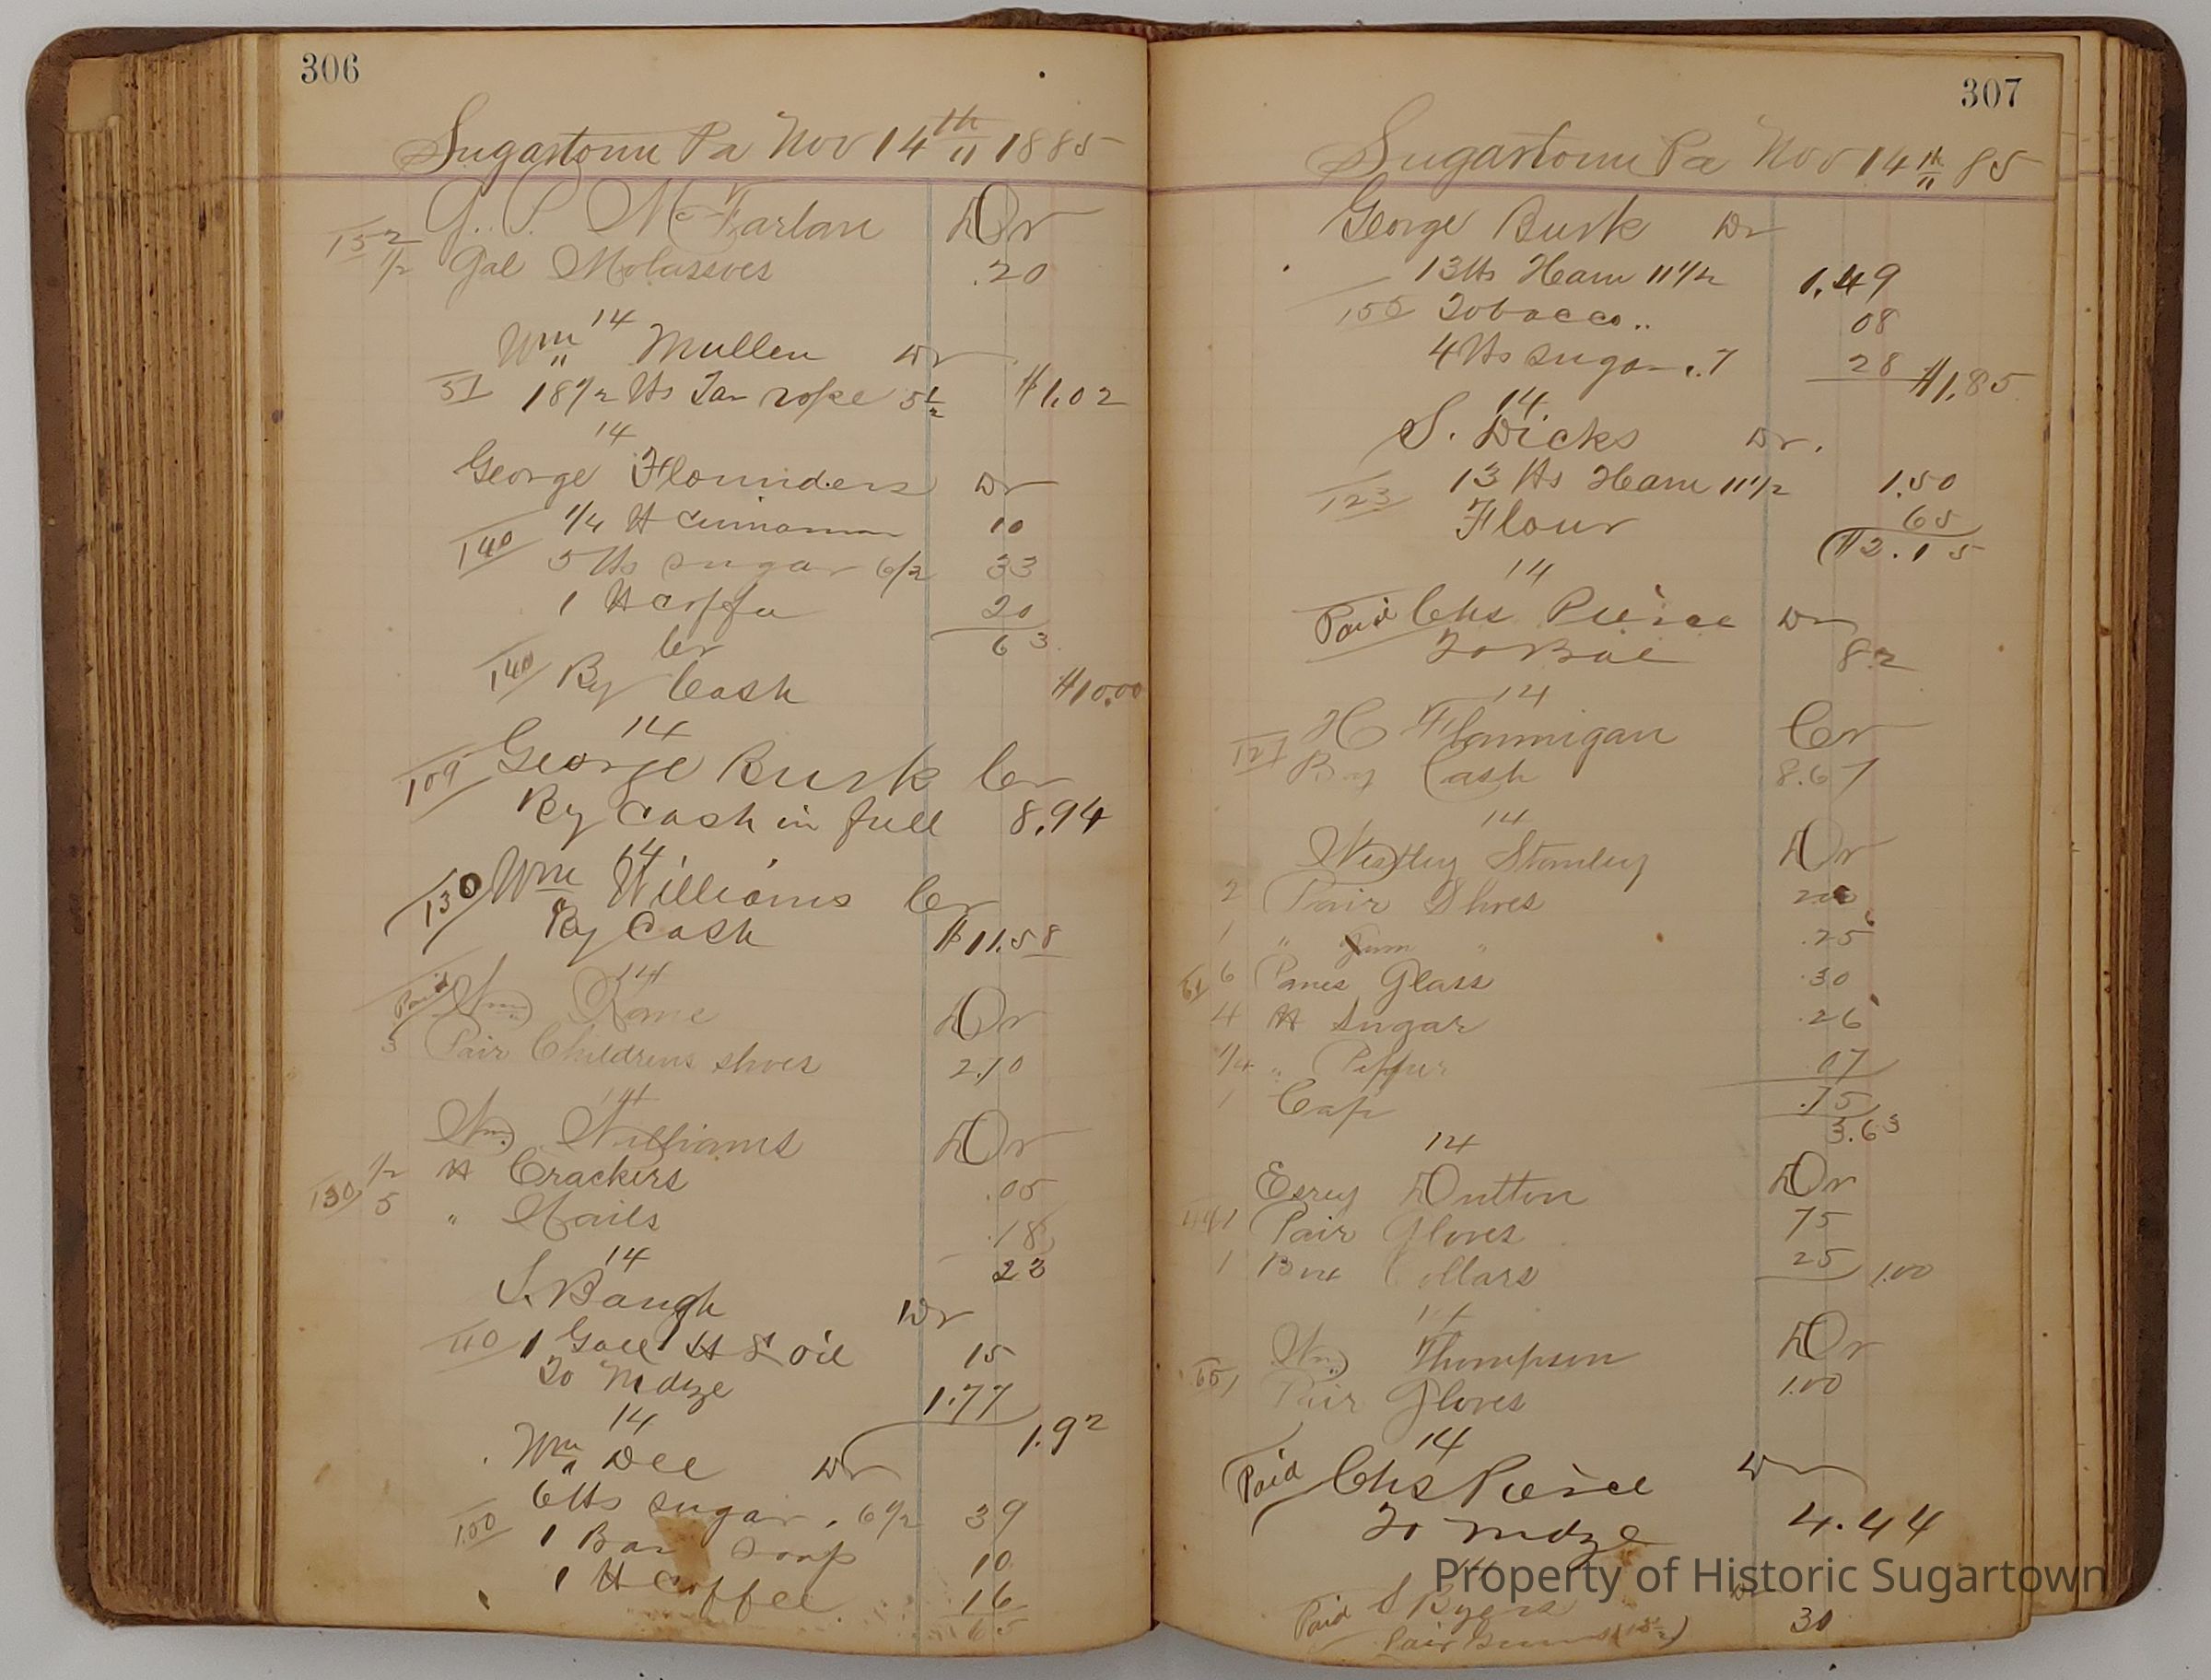 306
Sugartown Pa Nov 14th 1885
G. P. McFarlan Dr
152 1/2 Gal Molasses .20
14
Wm Mullen Dr
51 18 1/2 lbs Tar rope 5 1/2 $1.02
14
George Flounders Dr
1/4 lb Cinnamon 10
140 5 lbs sugar 6 1/2 33
1 lb Coffee 20
63
Cr
140 By Cash $10.00
14
109 George Burk Cr
By Cash in full 8.94
14
130 Wm Williams Cr
By Cash $11.58
14
Paid Wm Kane Dr
3 Pair Childrens shoes 2.10
14
Wm Williams Dr
1/2 lb Crackers .05
130 5 " Nails .18
23
14
S. Baugh Dr
110 1 Gall oil 15
To Mdze 1.77
1.92
14
Wm Dee Dr
6 lbs sugar 6 1/2 39
100 1 Bar Soap 10
1 lb Coffee 16
65
307
Sugartown Pa Nov 14th 85
George Burk Dr
13 lbs Ham 11 1/2 1.49
Tobacco 08
4 lbs sugar .7 28 $1.85
14
S. Dicks Dr.
13 lbs Ham 11 1/2 1.50
123 Flour 65
$2.15
14
Paid Chs Pierce Dr
To Bal 82
14
H Flannigan Cr
121 By Cash 8.67
14
Westley Stanley Dr
2 Pair Shoes 2.00
1 " Gum " .25
61 6 Panes Glass .30
4 lb Sugar .26
1/4 " Pepper .07
1 Cap .75
3.63
14
Esrey Dutton Dr
1 Pair Gloves 75
1 Box Collars 25 1.00
14
Wm Thompson Dr
1 Pair Gloves 1.00
14
Paid Chs Pierce Dr
To mdze 4.44
14
Paid S Byers Dr
Pair Gums 30
Property of Historic Sugartown